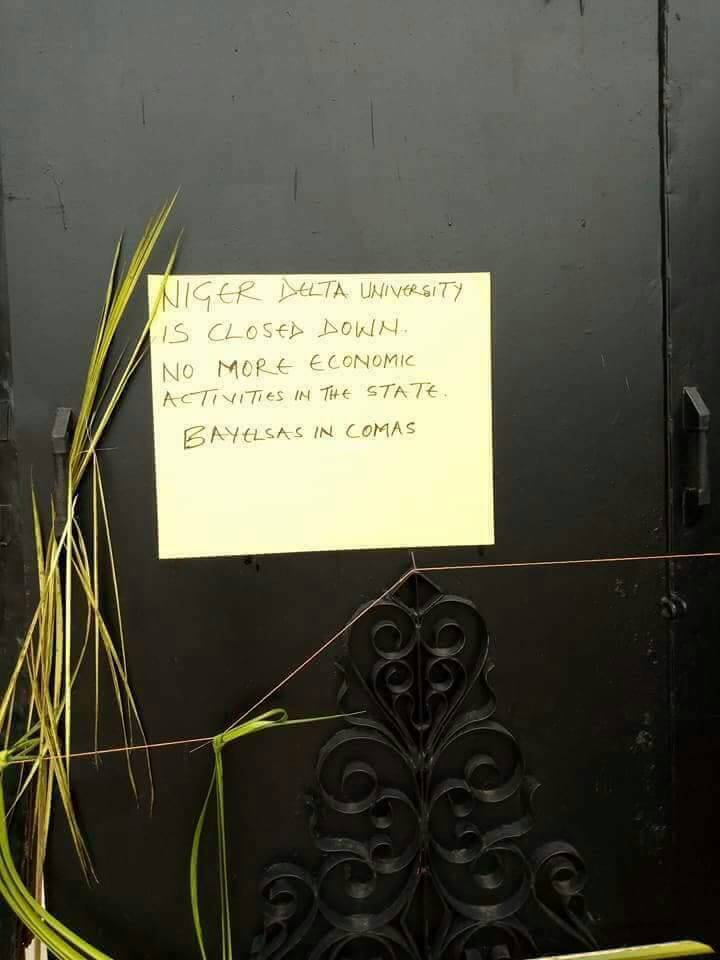 NIGER DELTA UNIVERSITY
IS CLOSED DOWN.
NO MORE ECONOMIC
ACTIVITIES IN THE STATE.
BAYELSAS IN COMAS